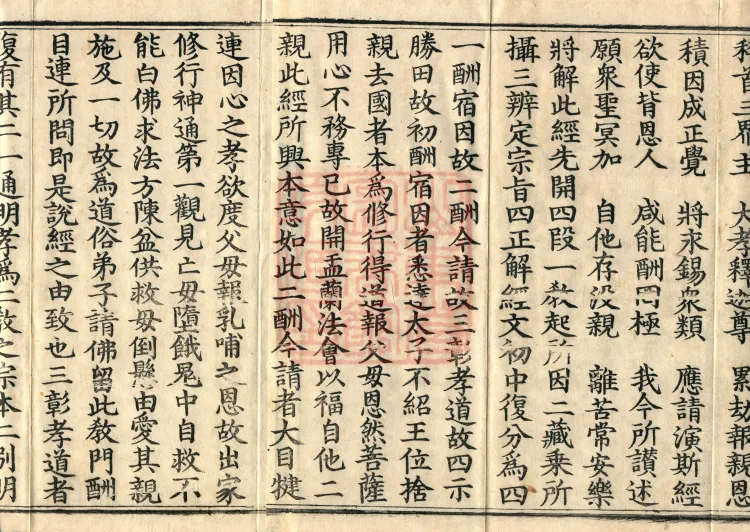 稽首三界主　大孝釋迦尊　累劫報親恩
積因成正覺　將求錫衆類　應請演斯經
欲使背恩人　咸能酬罔極　我今所讃述
願衆聖冥加　自他存没親　離苦常安樂
將解此經先開四段一教起所因二藏乗所
攝三辨定宗旨四正解經文初中復分爲四
一酬宿因故二酬今請故三彰孝道故四示
勝田故初酬宿因者悉達太子不紹王位捨
親去國者本爲修行得道報父母恩然菩薩
用心不務專已故開盂蘭法會以福自他二
親此經所興本意如此二酬今請者大目犍
連因心之孝欲度父母報乳哺之恩故出家
修行神通第一觀見亡母墮餓鬼中自救不
能白佛求法方陳盆供救母倒懸由愛其親
施及一切故爲道俗弟子請佛留此教門酬
目連所問即是説經之由致也三彰孝道者
復有其二一通明孝爲二教之宗本二別明